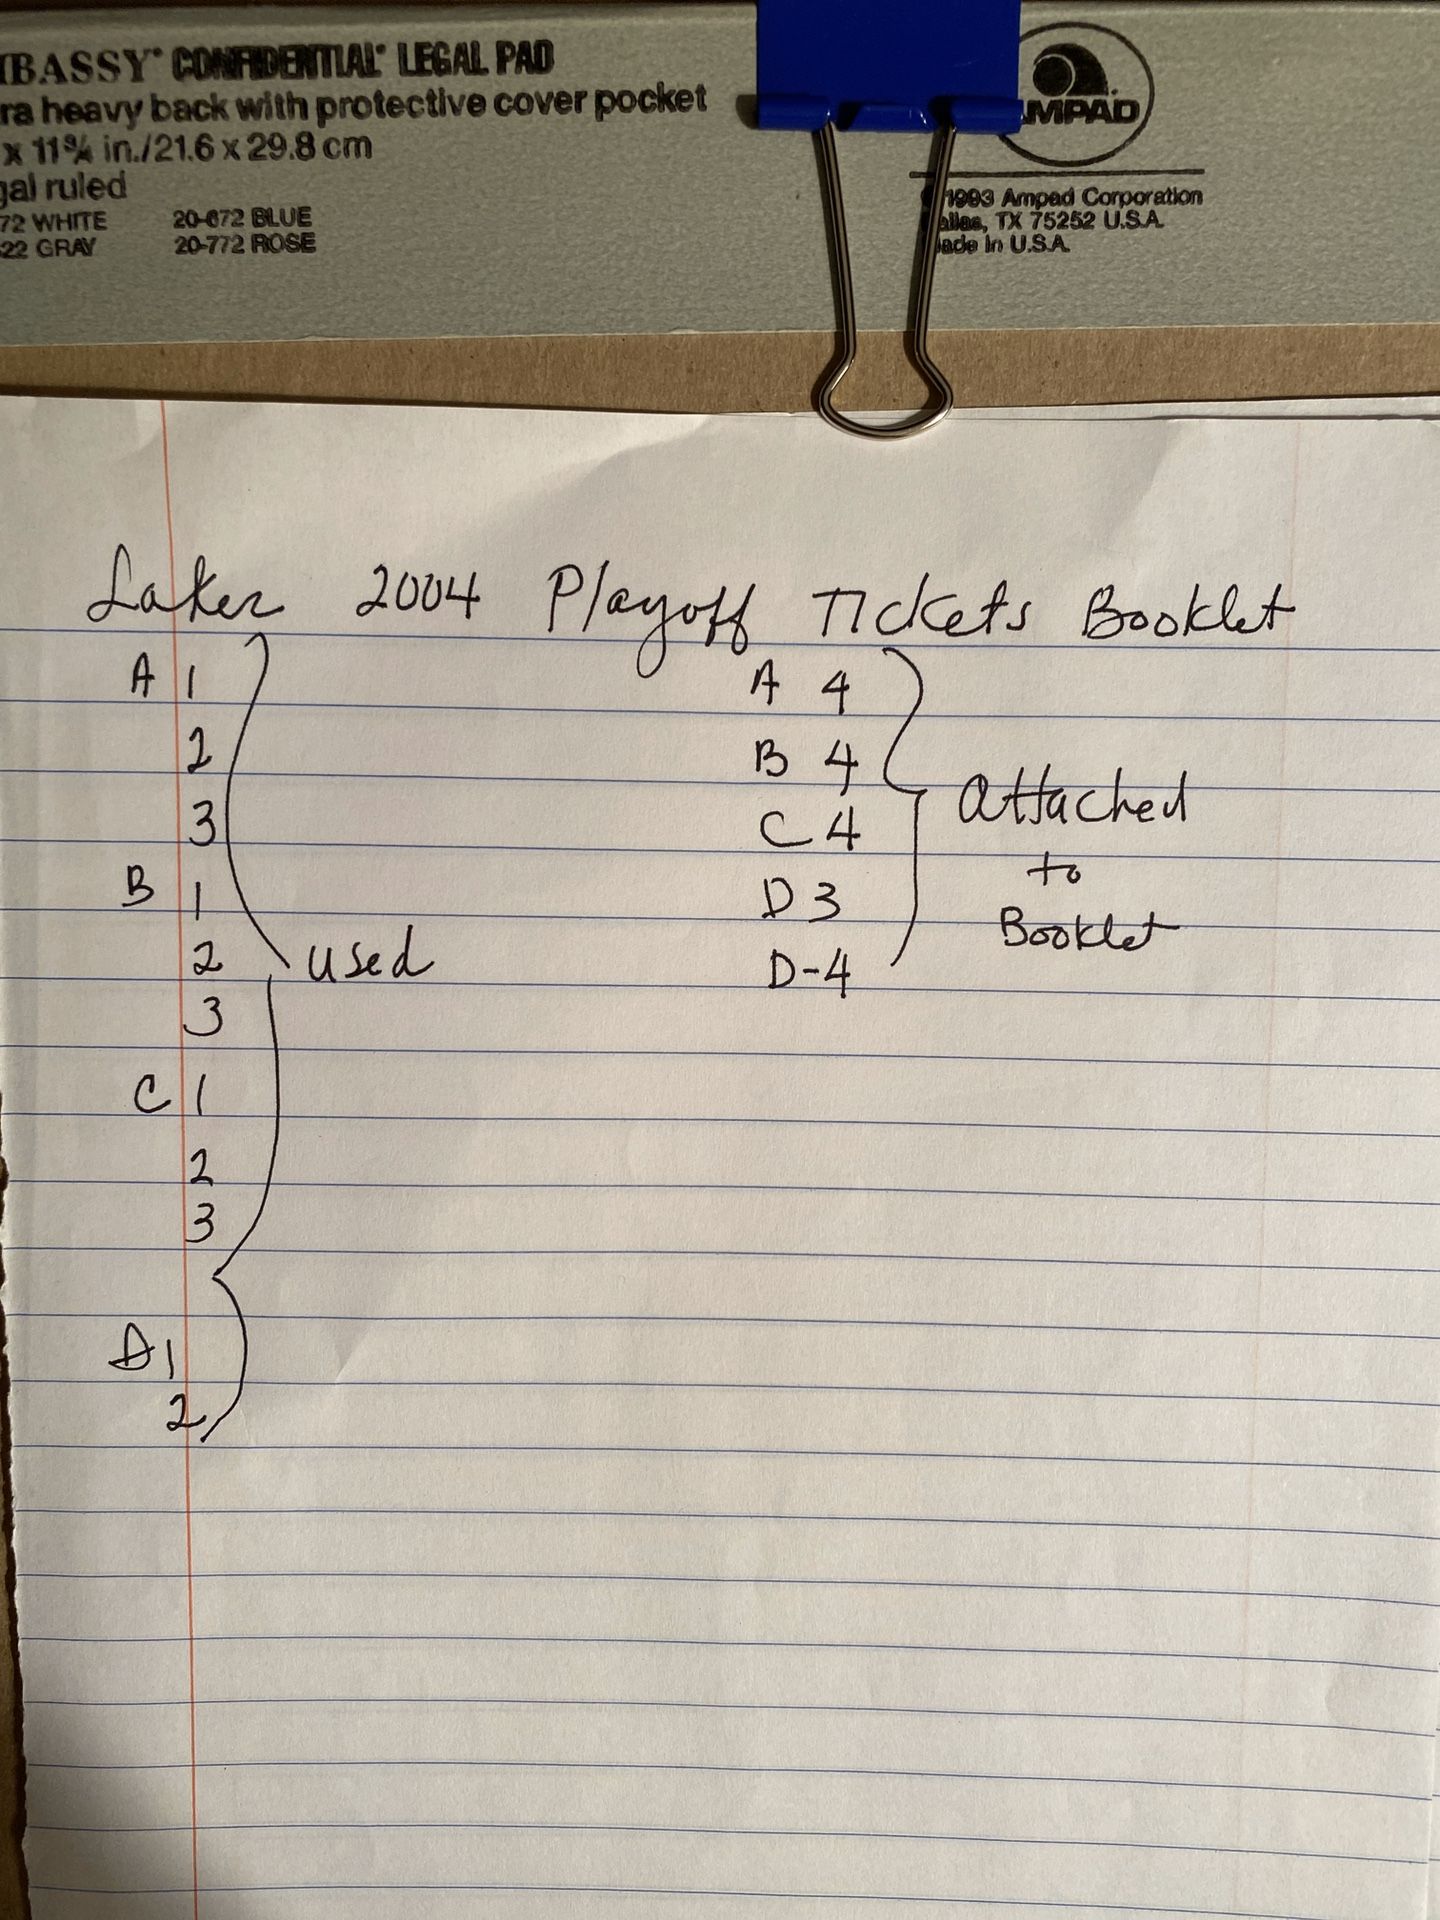 CONFIDENTIAL LEGAL PAD
heavy back with protective cover pocket
x 11¾ in./21.6 x 29.8 cm
ruled
WHITE 20-672 BLUE
GRAY 20-772 ROSE
AMPAD
1993 Ampad Corporation
TX 75252 U.S.A.
In U.S.A.
Laker 2004 Playoff Tickets Booklet
A 1
2
3
B 1
2
3
C 1
2
3
D 1
2
used
A 4
B 4
C 4
D 3
D-4
Attached
to
Booklet